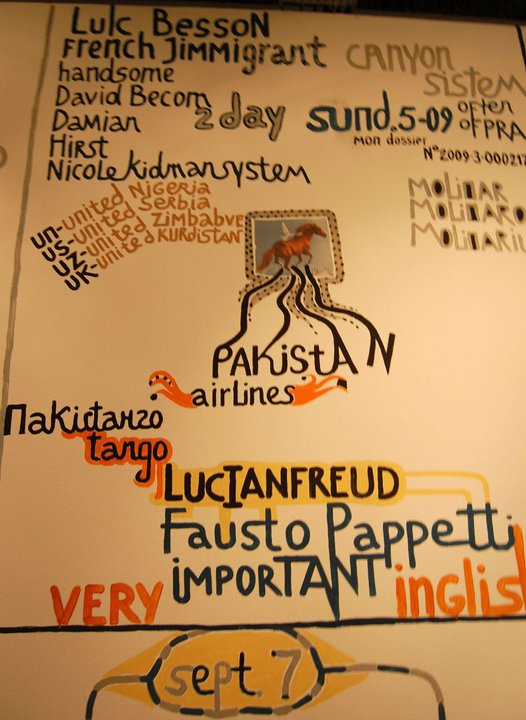 Luİc BessoN
French Jimmigrant
canyon
handsome
sistem
David Becom
often
Damian
2 day
sund.5-09
of PRA
Hirst
mon dossier
Nicole kidmansystem
N°2009-3-00021
un-united Nigeria
us-united Serbia
uz-united Zimbabve
uk-united Kurdistan
Molinar
Molinaro
Molinari
PAKistAN
airlines
Пakistanzo
tango
LUCIANFREUD
Fausto Pappetti
VERY
iMPORTANT
inglis
sept. 7